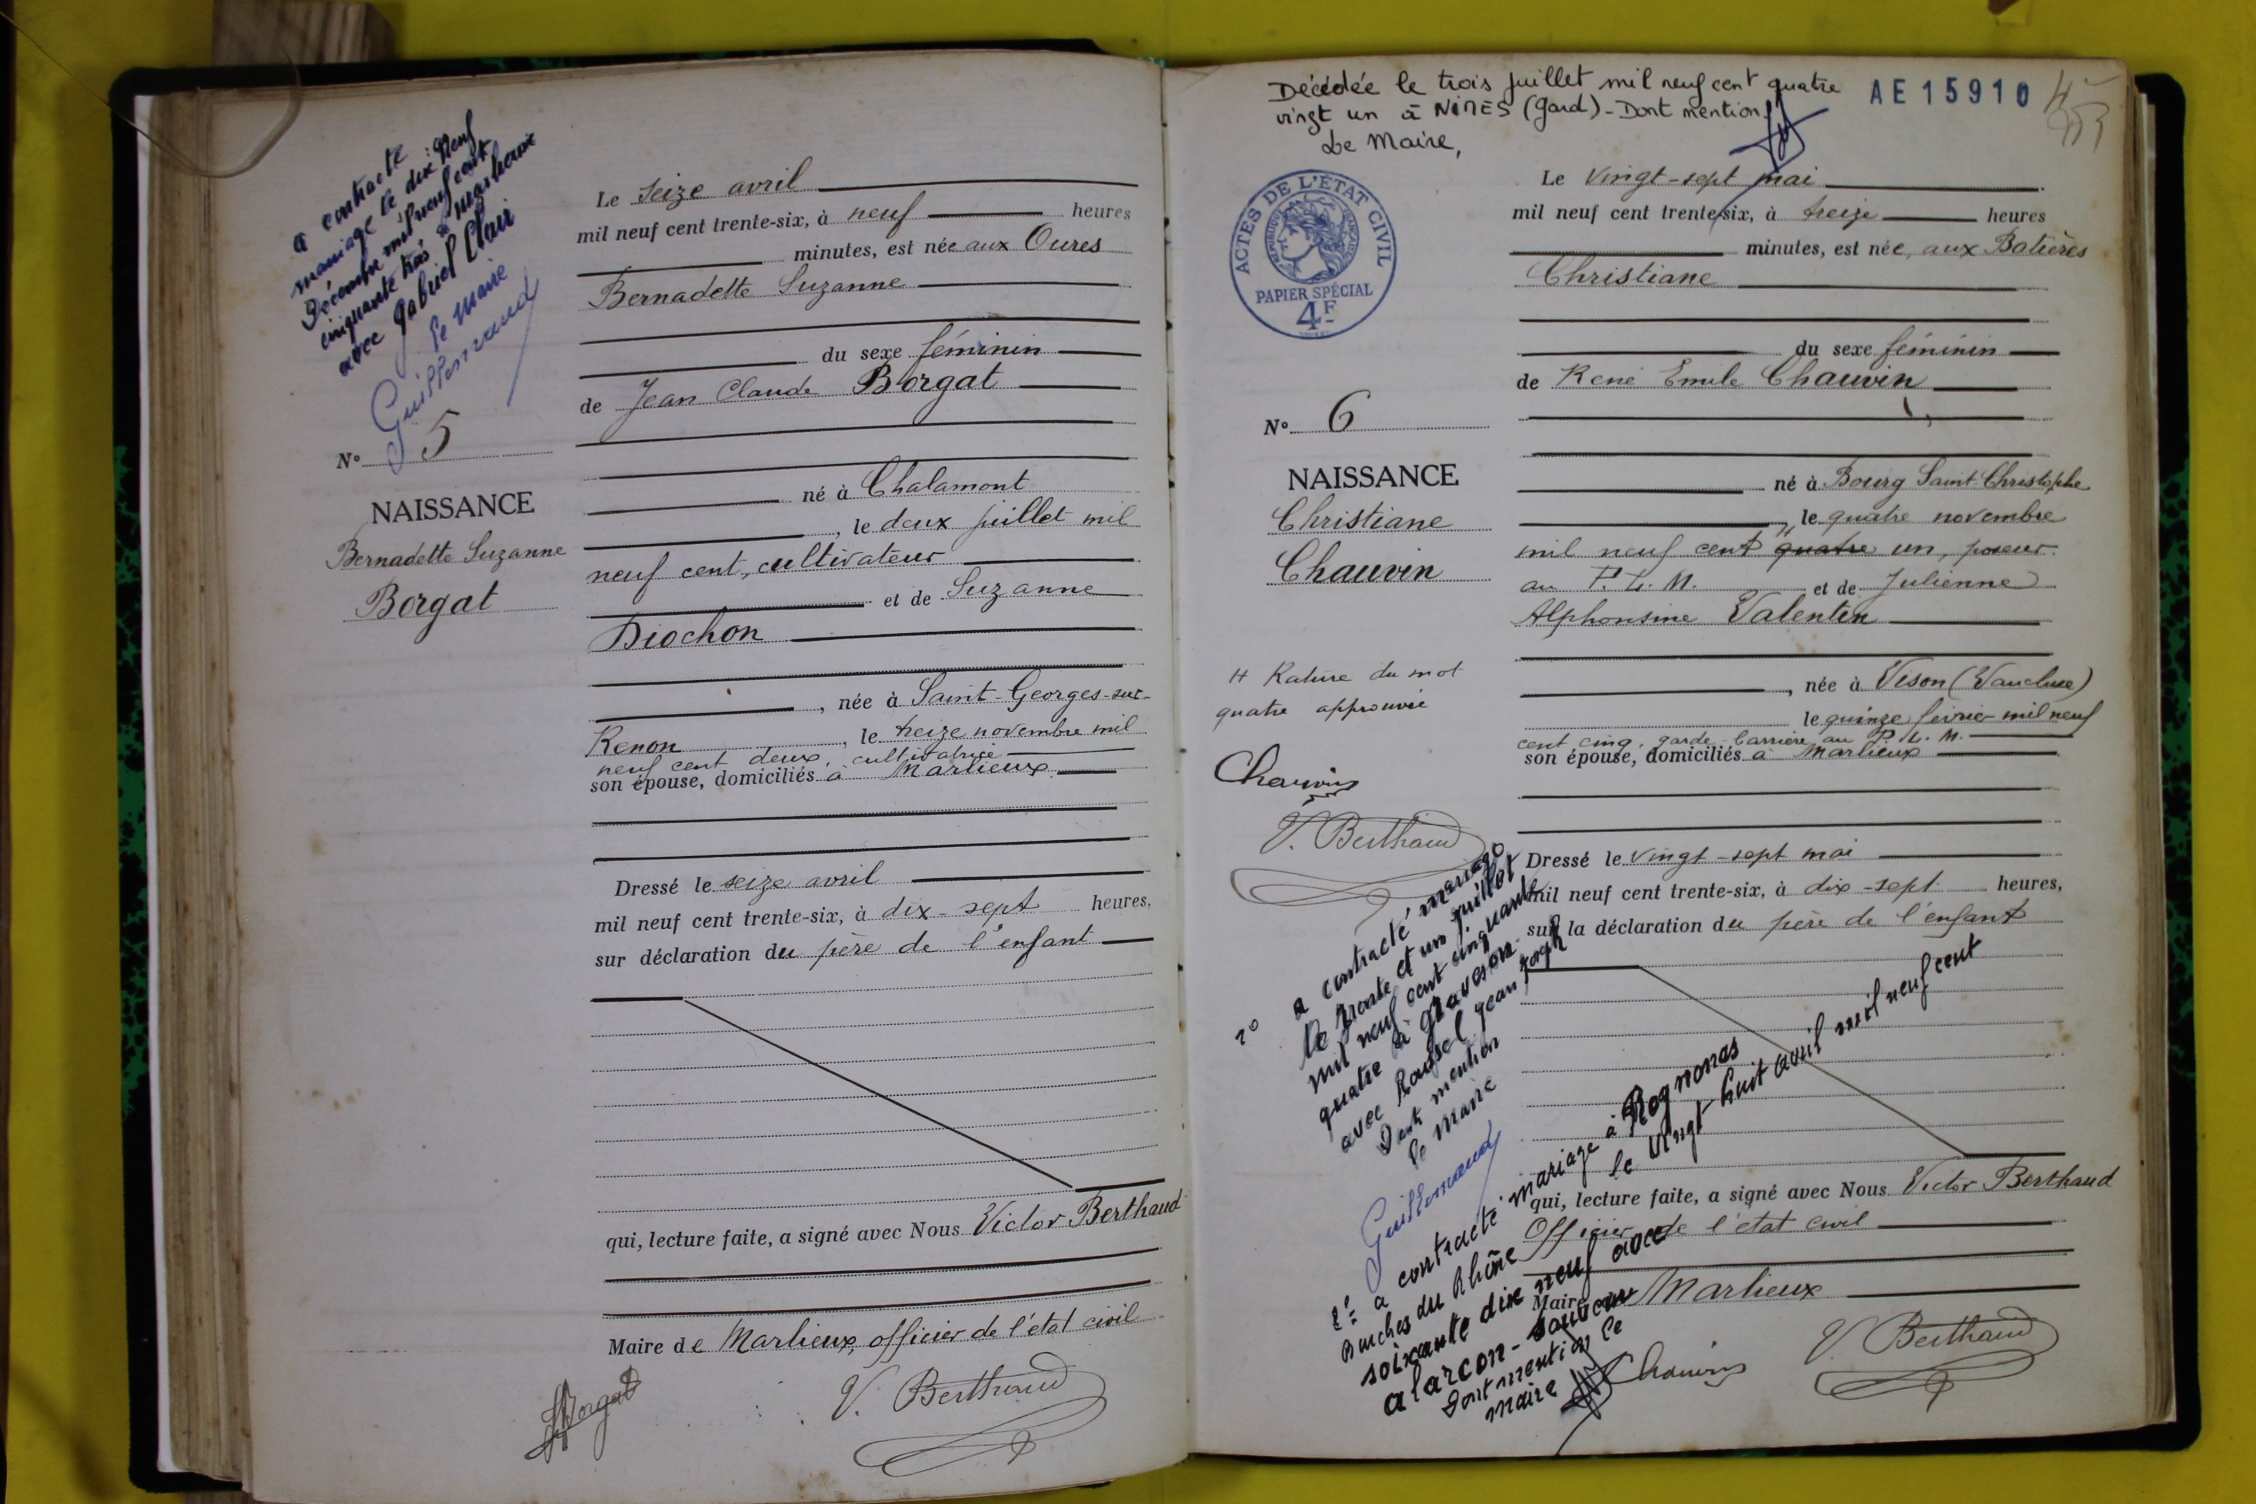 a contracté
mariage le dix neuf
Décembre mil neuf cent
cinquante trois à Marlieux
avec Gabriel Clair
Le Maire
Guillermaud
N° 5
NAISSANCE
Bernadette Suzanne
Borgat
Le seize avril
mil neuf cent trente-six, à neuf heures
minutes, est née aux Oures
Bernadette Suzanne
du sexe féminin
de Jean Claude Borgat
né à Chalamont
, le deux juillet mil
neuf cent, cultivateur
et de Suzanne
Diochon
, née à Saint-Georges-sur-
Renon, le treize novembre mil
neuf cent deux, cultivatrice
son épouse, domiciliés à Marlieux
Dressé le seize avril
mil neuf cent trente-six, à dix-sept heures,
sur déclaration du père de l'enfant
qui, lecture faite, a signé avec Nous Victor Berthaud
Maire de Marlieux, officier de l'état civil
Borgat
V. Berthaud
Décédée le trois juillet mil neuf cent quatre
vingt un à NIMES (Gard) - Dont mention
Le Maire,
AE 15910
ACTES DE L'ÉTAT CIVIL
RÉPUBLIQUE FRANÇAISE
PAPIER SPÉCIAL
4F
N° 6
NAISSANCE
Christiane
Chauvin
H Rature du mot
quatre approuvée
Chauvin
V. Berthaud
Le vingt-sept mai
mil neuf cent trente-six, à treize heures
minutes, est née, aux Batières
Christiane
du sexe féminin
de René Emile Chauvin
né à Bourg Saint-Christophe
, le quatre novembre
mil neuf cent quatre un, poseur
au P. L. M. et de Julienne
Alphonsine Valentin
, née à Veson (Vaucluse)
le quinze février mil neuf
cent cinq, garde-barrière au P. L. M.
son épouse, domiciliés à Marlieux
Dressé le vingt-sept mai
mil neuf cent trente-six, à dix-sept heures,
sur la déclaration du père de l'enfant
qui, lecture faite, a signé avec Nous Victor Berthaud
Officier de l'état civil
Maire de Marlieux
Chauvin
V. Berthaud
1°
a contracté mariage
le trente et un juillet
mil neuf cent cinquante
quatre à Graveson
avec Roussel Jean Joseph
Dont mention
Le Maire
Guillermaud
2° a contracté mariage à Rognonas
Bouches du Rhône le vingt-huit avril mil neuf cent
soixante dix neuf avec
alarcon - sauveur
Dont mention le
maire